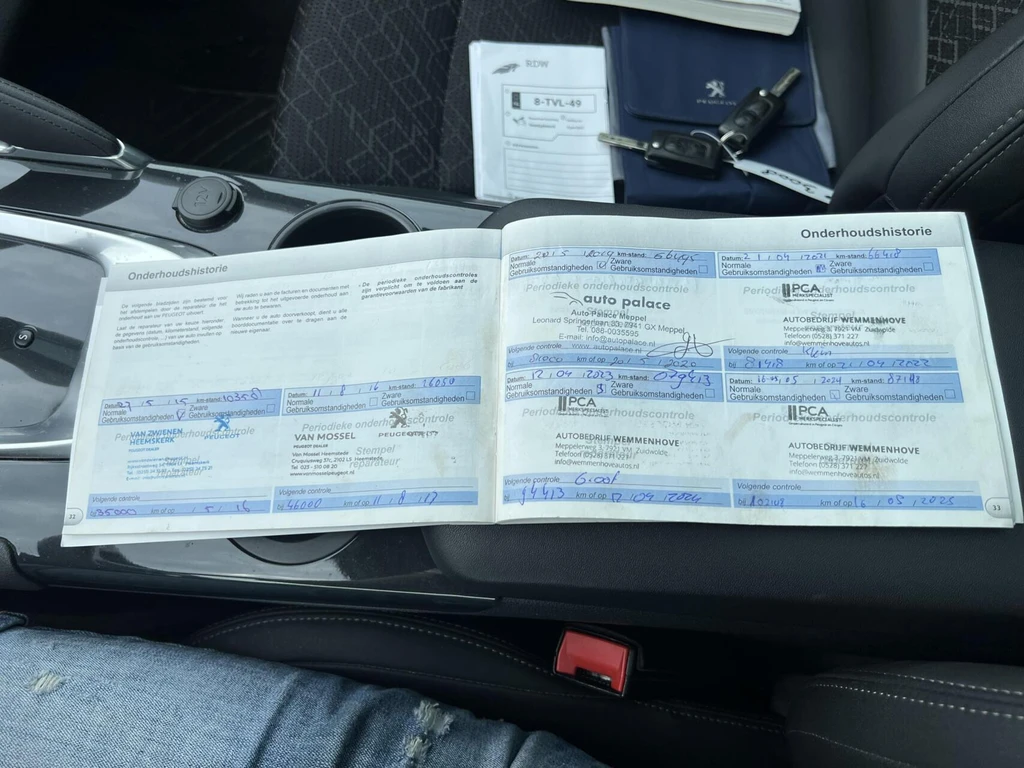 RDW
8-TVL-49
PEUGEOT
Onderhoudshistorie
De volgende bladzijden zijn bestemd voor
het afstempelen door de reparateur die het
onderhoud aan uw PEUGEOT uitvoert.
Laat de reparateur van uw keuze hieronder
de gegevens (datum, kilometerstand, volgende
onderhoudscontrole...) van uw auto invullen op
basis van de gebruiksomstandigheden.
Wij raden u aan de facturen en documenten met
betrekking tot het uitgevoerde onderhoud aan
de auto te bewaren.
Wanneer u de auto doorverkoopt, dient u alle
boorddocumenten over te dragen aan de
nieuwe eigenaar.
- De periodieke onderhoudscontroles
zijn verplicht om te voldoen aan de
garantievoorwaarden van de fabrikant
Datum: 27.5.15 km-stand: 10358
Normale
Gebruiksomstandigheden
Zware
Gebruiksomstandigheden
Periodieke onderhoudscontrole
VAN ZWIENEN
HEEMSKERK
PEUGEOT
Volgende controle
bij 35000 km of op
Datum: 11.8.16 km-stand: 26050
Normale
Gebruiksomstandigheden
Zware
Gebruiksomstandigheden
Periodieke onderhoudscontrole
VAN MOSSEL
PEUGEOT DEALER
PEUGEOT
Van Mossel Heemstede
Cruquiusweg 37c, 2102 LS Heemstede
Tel 023 - 510 08 20
www.vanmosselpeugeot.nl
Stempel
reparateur
Volgende controle
bij 46000 km of op 11.8.17
32
Onderhoudshistorie
Datum: km-stand:
Normale
Gebruiksomstandigheden
Zware
Gebruiksomstandigheden
Periodieke onderhoudscontrole
auto palace
Auto Palace Meppel
Leonard Springerlaan 33, 7941 GX Meppel
Tel. 088-0035595
E-mail: info@autopalace.nl
www.autopalace.nl
Volgende controle
bij km of op
Datum: 21.04.2021 km-stand: 66418
Normale
Gebruiksomstandigheden
Zware
Gebruiksomstandigheden
Periodieke onderhoudscontrole
PCA
MERKSPECIALIST
AUTOBEDRIJF WEMMENHOVE
Meppelerweg 3, 7921 VM Zuidwolde
Telefoon (0528) 371 227
info@wemmenhoveautos.nl
Volgende controle
bij 81418 km of op 21.04.2022
Datum: 12.04.2023 km-stand: 079413
Normale
Gebruiksomstandigheden
Zware
Gebruiksomstandigheden
Periodieke onderhoudscontrole
PCA
MERKSPECIALIST
AUTOBEDRIJF WEMMENHOVE
Meppelerweg 3, 7921 VM Zuidwolde
Telefoon (0528) 371 227
info@wemmenhoveautos.nl
Volgende controle
bij 94413 km of op 12.04.2024
Datum: 05.2024 km-stand: 87148
Normale
Gebruiksomstandigheden
Zware
Gebruiksomstandigheden
Periodieke onderhoudscontrole
PCA
MERKSPECIALIST
AUTOBEDRIJF WEMMENHOVE
Meppelerweg 3, 7921 VM Zuidwolde
Telefoon (0528) 371 227
info@wemmenhoveautos.nl
Volgende controle
bij 102148 km of op 16.05.2025
33